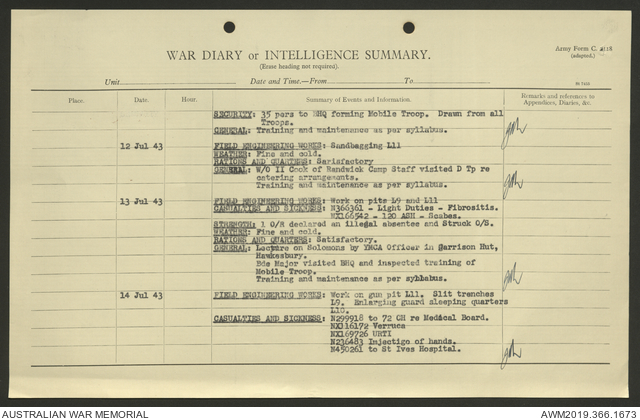 Army Form C. 2118
(adapted.)
WAR DIARY or INTELLIGENCE SUMMARY.
(Erase heading not required).
Unit Date and Time.—From To
Place. Date. Hour. Summary of Events and Information. Remarks and references to Appendices, Diaries, &c.
SECURITY: 35 pers to BHQ forming Mobile Troop. Drawn from all
Troops.
GENERAL: Training and maintenance as per syllabus.
12 Jul 43 FIELD ENGINEERING WORKS: Sandbagging L11
WEATHER: Fine and cold.
RATIONS AND QUARTERS: Satisfactory
GENERAL: W/O II Cook of Randwick Camp Staff visited D Tp re
catering arrangements.
Training and maintenance as per syllabus.
13 Jul 43 FIELD ENGINEERING WORKS: Work on pits L9 and L11
CASUALTIES AND SICKNESS: N366361 - Light Duties - Fibrositis.
NX166542 - 120 ASH - Scabes.
STRENGTH: 1 O/R declared an illegal absentee and Struck O/S.
WEATHER: Fine and cold.
RATIONS AND QUARTERS: Satisfactory.
GENERAL: Lecture on Solomons by YMCA Officer in garrison Hut,
Hawkesbury.
Bde Major visited BHQ and inspected training of
Mobile Troop.
Training and maintenance as per syllabus.
14 Jul 43 FIELD ENGINEERING WORKS: Work on gun pit L11. Slit trenches
L9. Enlarging guard sleeping quarters
L10.
CASUALTIES AND SICKNESS: N299918 to 72 CH re Medical Board.
NX116172 Verruca
NX169726 URTI
N236483 Injectigo of hands.
N450261 to St Ives Hospital.
AUSTRALIAN WAR MEMORIAL AWM2019.366.1673